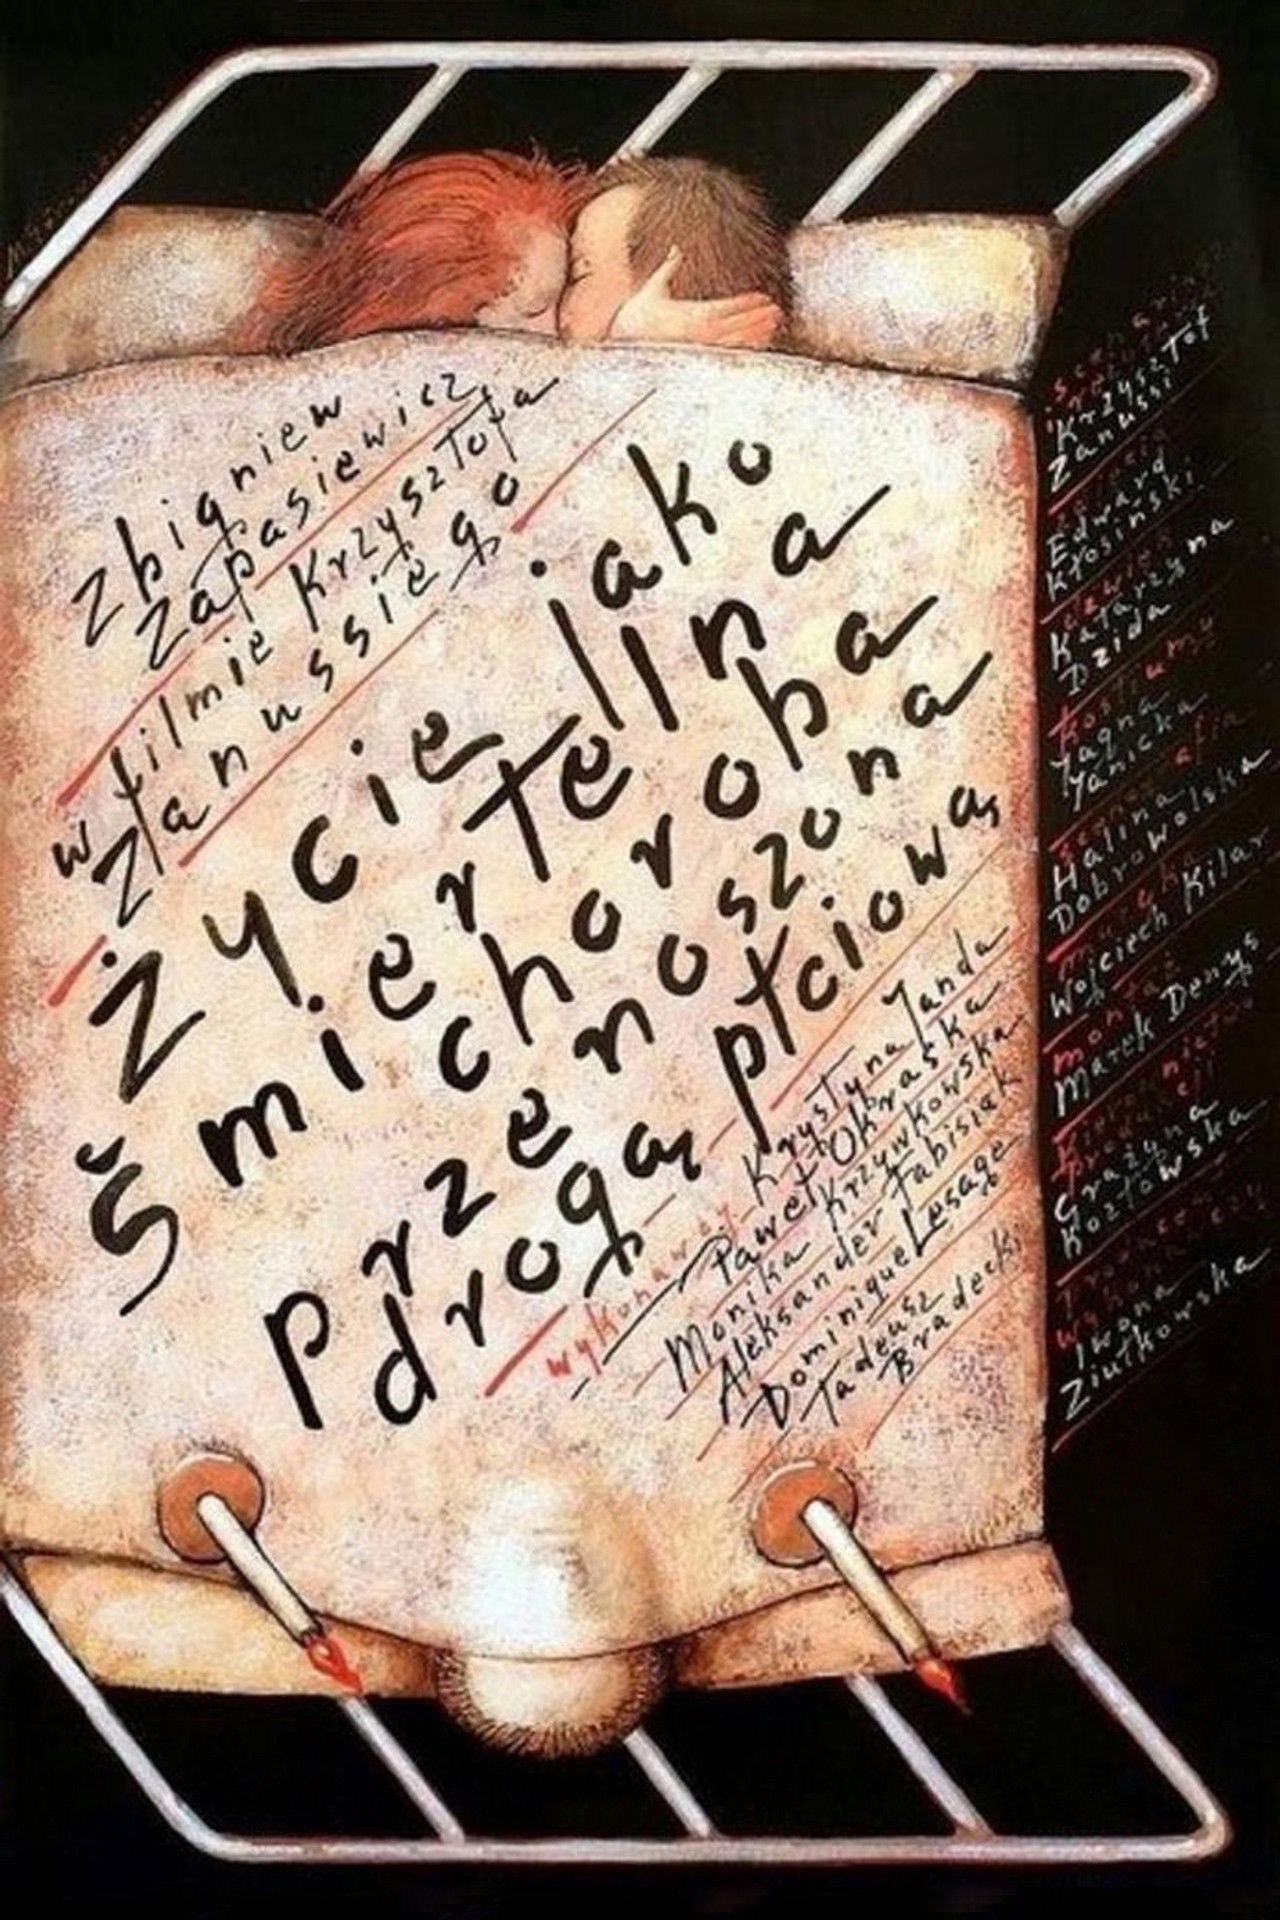 Zbigniew
Zapasiewicz
w filmie Krzysztofa
Zanussiego
Życie jako
śmiertelna
choroba
przenoszona
drogą płciową
wykonawcy Krystyna Janda
Paweł Okraska
Monika Krzywkowska
Aleksander Fabisiak
Dominique Lesage
Tadeusz
Bradecki
Krzysztof
Zanussi
zdjęcia
Edward
Kłosiński
dźwięk
Katarzyna
Dzida
kostiumy
Jagna
Janicka
scenografia
Halina
Dobrowolska
muzyka
Wojciech Kilar
montaż
Marek Denys
kierownictwo
produkcji
Grażyna
Kozłowska
Iwona
Ziułkowska